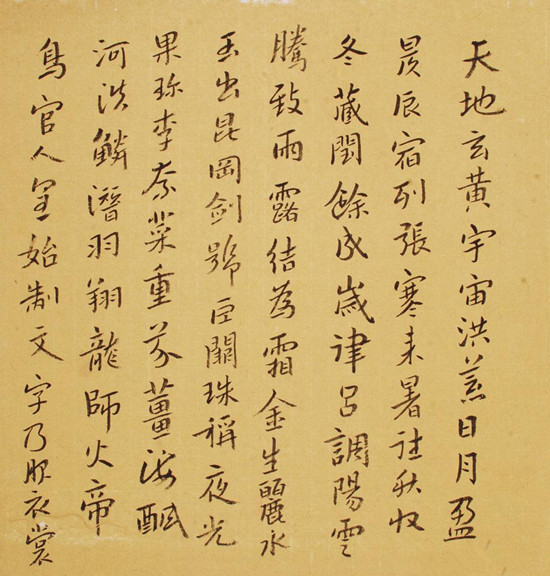 天地玄黃宇宙洪荒日月盈
昃辰宿列張寒来暑往秋收
冬藏閏餘成歲律呂調陽雲
騰致雨露結為霜金生麗水
玉出昆岡劍號巨闕珠稱夜光
果珍李柰菜重芥薑海醎
河淡鱗潛羽翔龍師火帝
鳥官人皇始制文字乃服衣裳